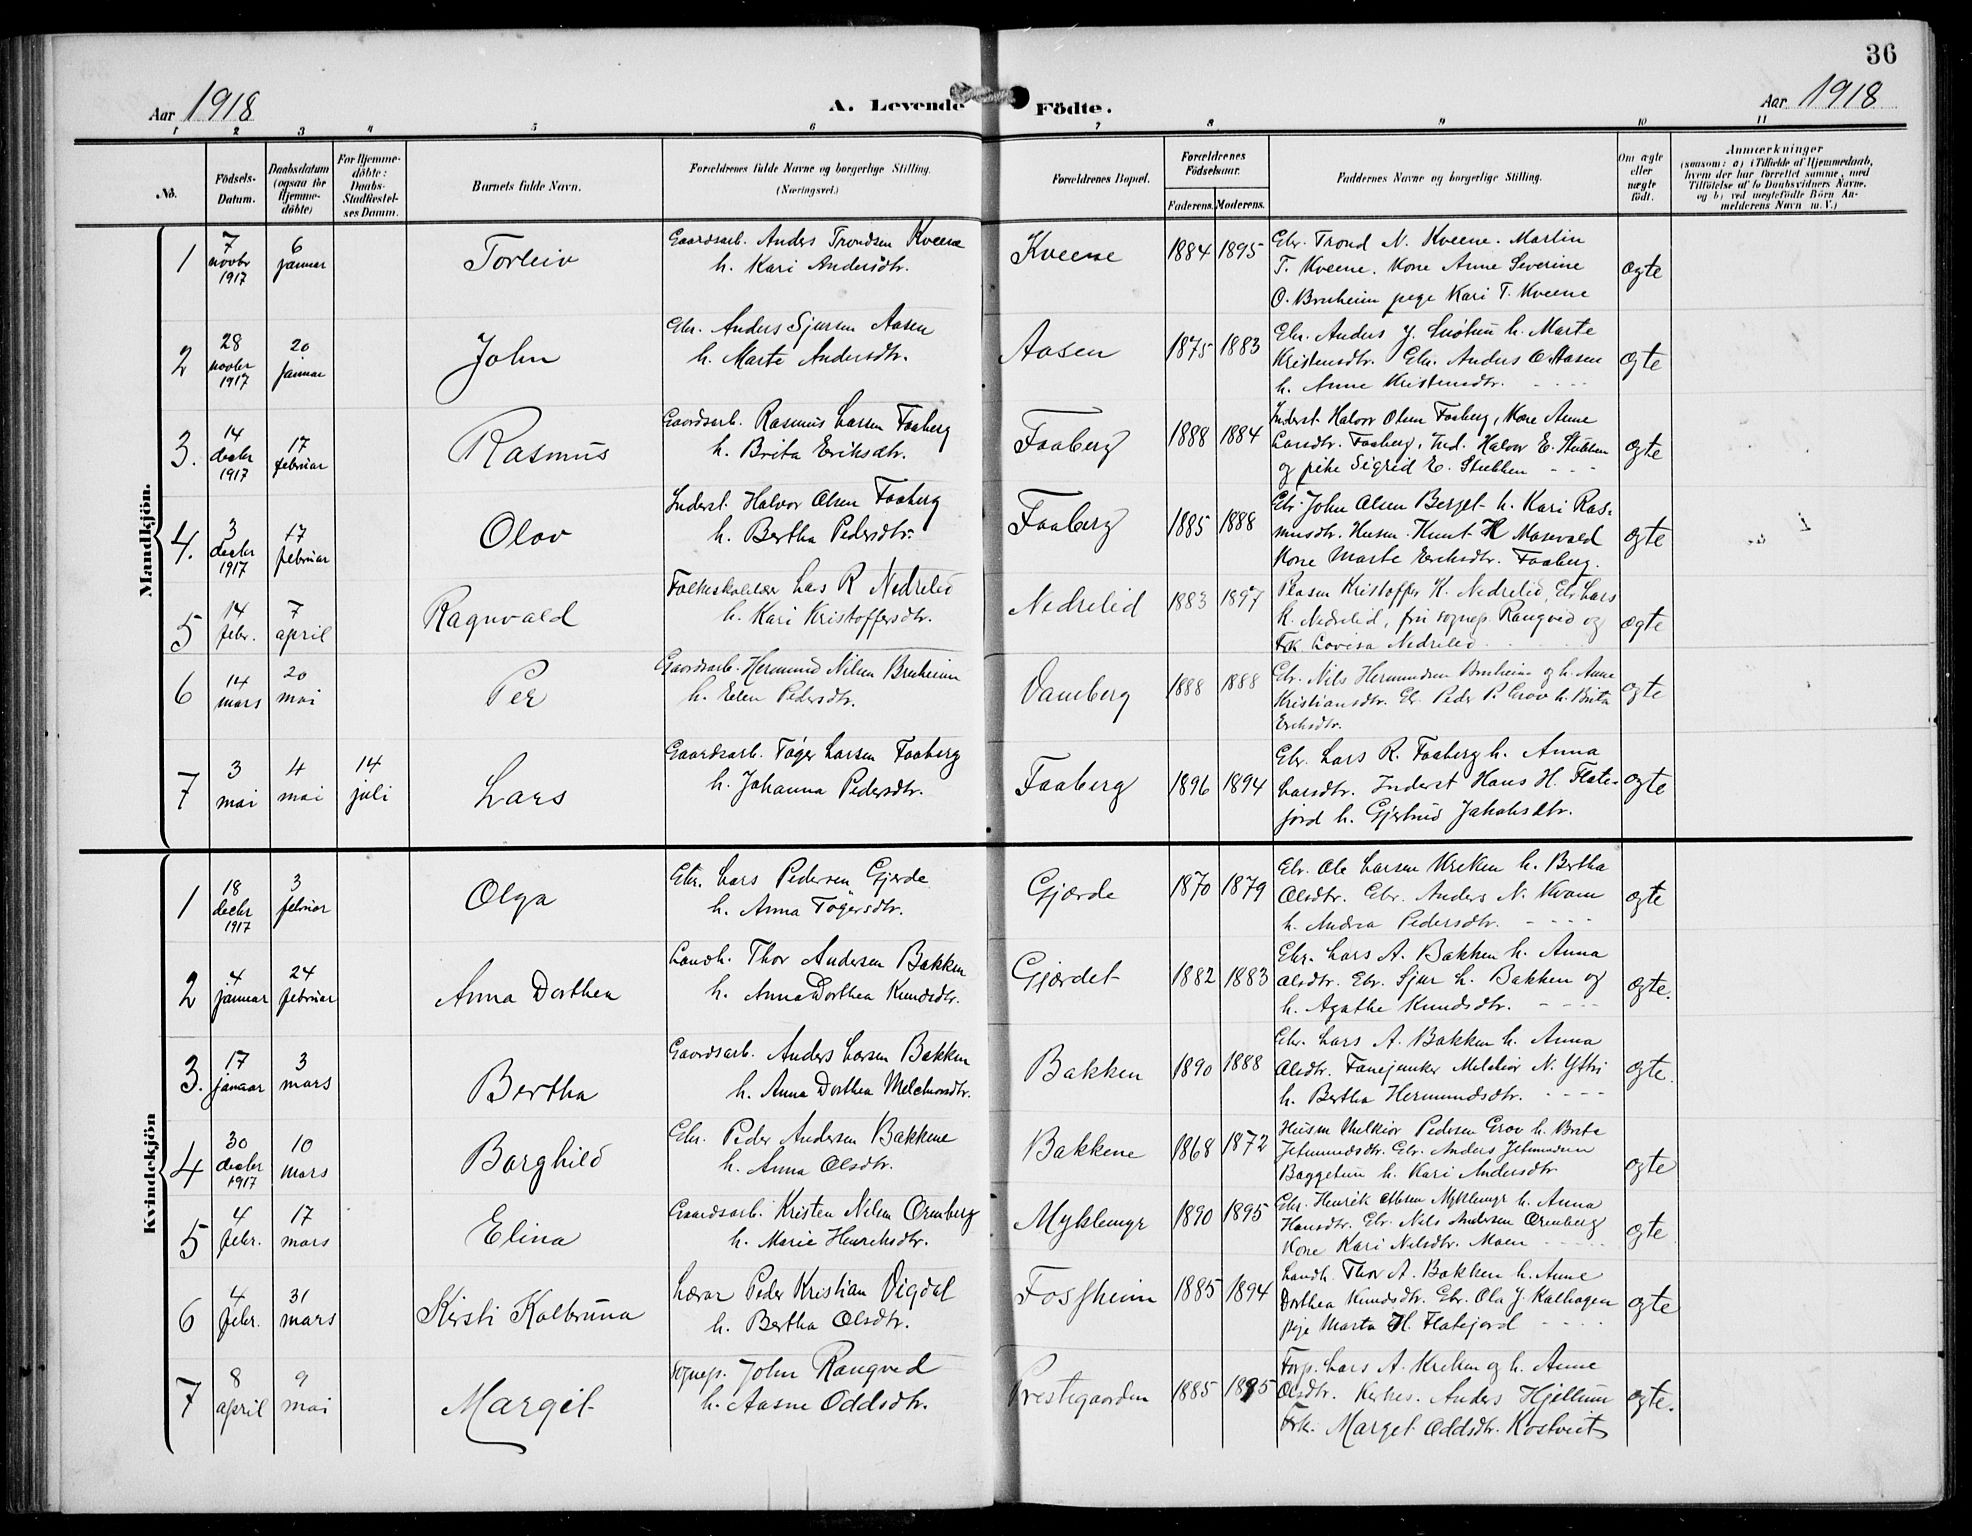 36
Aar 1918
A. Levende Födte.
Aar 1918
1 2 3 4 5 6 7 8 9 10 11
No.
Födsels-Datum.
Daabsdatum (ogsaa for Hjemmedöbte)
For Hjemmedöbte: Daabs-Stadfæstelses Datum.
Barnets fulde Navn.
Forældrenes fulde Navne og borgerlige Stilling. (Næringsvei.)
Forældrenes Bopæl.
Forældrenes Födselsaar.
Faderens. Moderens.
Faddernes Navne og borgerlige Stilling.
Om ægte eller uægte födt.
Anmærkninger
(saasom: a) i Tilfælde af Hjemmedaab, hvem der har forrettet samme, med Tilföielse af to Daabsvidners Navne, og b) ved uægtefödte Börn Anmelderens Navn m. V.)
Mandkjön.
1 7 novbr 1917 6 januar Torleiv Gaardsarb. Anders Trondsen Kveene h. Kari Andersdtr. Kveene 1884 1895 Gbr. Trond N. Kveene. Martin
T. Kveene. Kone Anne Severine
O. Bruheim pege Kari T. Kveene ægte
2 28 novbr 1917 20 januar John Gbr. Anders Sjursen Aasen h. Marte Andersdtr. Aasen 1875 1883 Gbr. Anders J. h. Marte
Kristensdtr. Gbr. Anders O. Aasen
h. Anne Kristensdtr. ægte
3. 14 decbr 1917 17 februar Rasmus Gaardsarb. Rasmus Larsen Faaberg h. Brita Eriksdtr. Faaberg 1888 1884 Inderst Halvor Olsen Faaberg, Kone Anne
Larsdtr. Faaberg, Ind. Halvor E. Stubhen
og pike Sigrid E. Stubhen ægte
4. 3 decbr 1917 17 februar Olav Inderst. Halvor Olsen Faaberg h. Bertha Pedersdtr. Faaberg 1885 1888 Gbr John Olsen Berget h. Kari Ras-
musdtr. Husm. Knut H
Kone Marte Eriksdtr. Faaberg. ægte
5 14 febr. 7 april Ragnvald Folkeskolelær Lars R Nedrelid h. Kari Kristoffersdtr. Nedrelid 1883 1897 Kristoffer K. Nedrelid, Gbr Lars
K. Nedrelid, fru sognep. Rangved og
Frk. Lovisa Nedrelid ægte
6 14 mars 20 mai Per Gaardsarb. Hermund Nilsen Bruheim h. Elen Pedersdtr. Vamberg 1888 1888 Gbr. Nils Hermundsen Bruheim og h. Anne
Kristiansdtr. Gbr. Peder P. Grov h. Brita
Eriksdtr. ægte
7 3 mai 4 mai 14 juli Lars Gaardsarb. Töger Larsen Faaberg h. Johanna Pedersdtr. Faaberg 1896 1894 Gbr. Lars R. Faaberg h. Anna
Larsdtr. Inderst Hans H. Flate-
jord h. Gjertrud Jakobsdtr. ægte
Kvindekjön
1 18 decbr 1917 3 februar Olga Gbr. Lars Pedersen Gjerde h. Anna Tögersdtr. Gjerde 1870 1879 Gbr. Ole Larsen Kreken h. Bertha
Olsdtr. Gbr. Anders N. Kvam
h. Andrea Pedersdtr. ægte
2 4 januar 24 februar Anna Dorthea Landh. Thor Andersen Bakken h. Anna Dorthea Knudsdtr. Gjerdet 1882 1883 Gbr. Lars A. Bakken h. Anna
Olsdtr. Gbr. Sjur L. Bakken og
h. Agathe Knudsdtr. ægte.
3. 17 januar 3 mars Bertha Gaardsarb. Anders Larsen Bakken h. Anna Dorthea Melchiorsdtr. Bakken 1890 1888 Gbr. Lars A. Bakken h. Anna
Olsdtr. Fanejunker Melchior N. Ytri
h. Bertha Hermundsdtr. ægte.
4 30 decbr 1917 10 mars Borghild Gbr. Peder Andersen Bakkene h. Anna Olsdtr. Bakkene 1868 1872 Husm Melkior Pedersen Grov h. Brita
Jetmundsdtr. Gbr. Anders Jetmundsen
Baggetun h. Kari Andersdtr ægte
5 4 febr. 17 mars Elina Gaardsarb. Kristen Nilsen Ormberg h. Marie Henriksdtr. Myklemyr 1890 1895 Gbr. Henrik Myklemyr h. Anna
Hansdtr. Gbr. Nils Andersen Ormberg
Kone Kari Nilsdtr. Moen ægte
6 4 febr. 31 mars Kirsti Kolbruna Lærar Peder Kristian Vigdal h. Bertha Olsdtr. Fossheim 1885 1894 Landh. Thor A. Bakken h. Anne
Dorthea Knudsdtr. Gbr. Ola J. Kalhagen
pige Marta H. Flatejord ægte
7 8 april 9 mai Margit Sognep. John Rangved h. Aasne Oddsdtr. Prestegaarden 1885 1895 Forp. Lars A. Kreken og h. Anne
Olsdtr. Anders Hjellum
Frk. Marget Oddsdtr. Kostveit ægte.